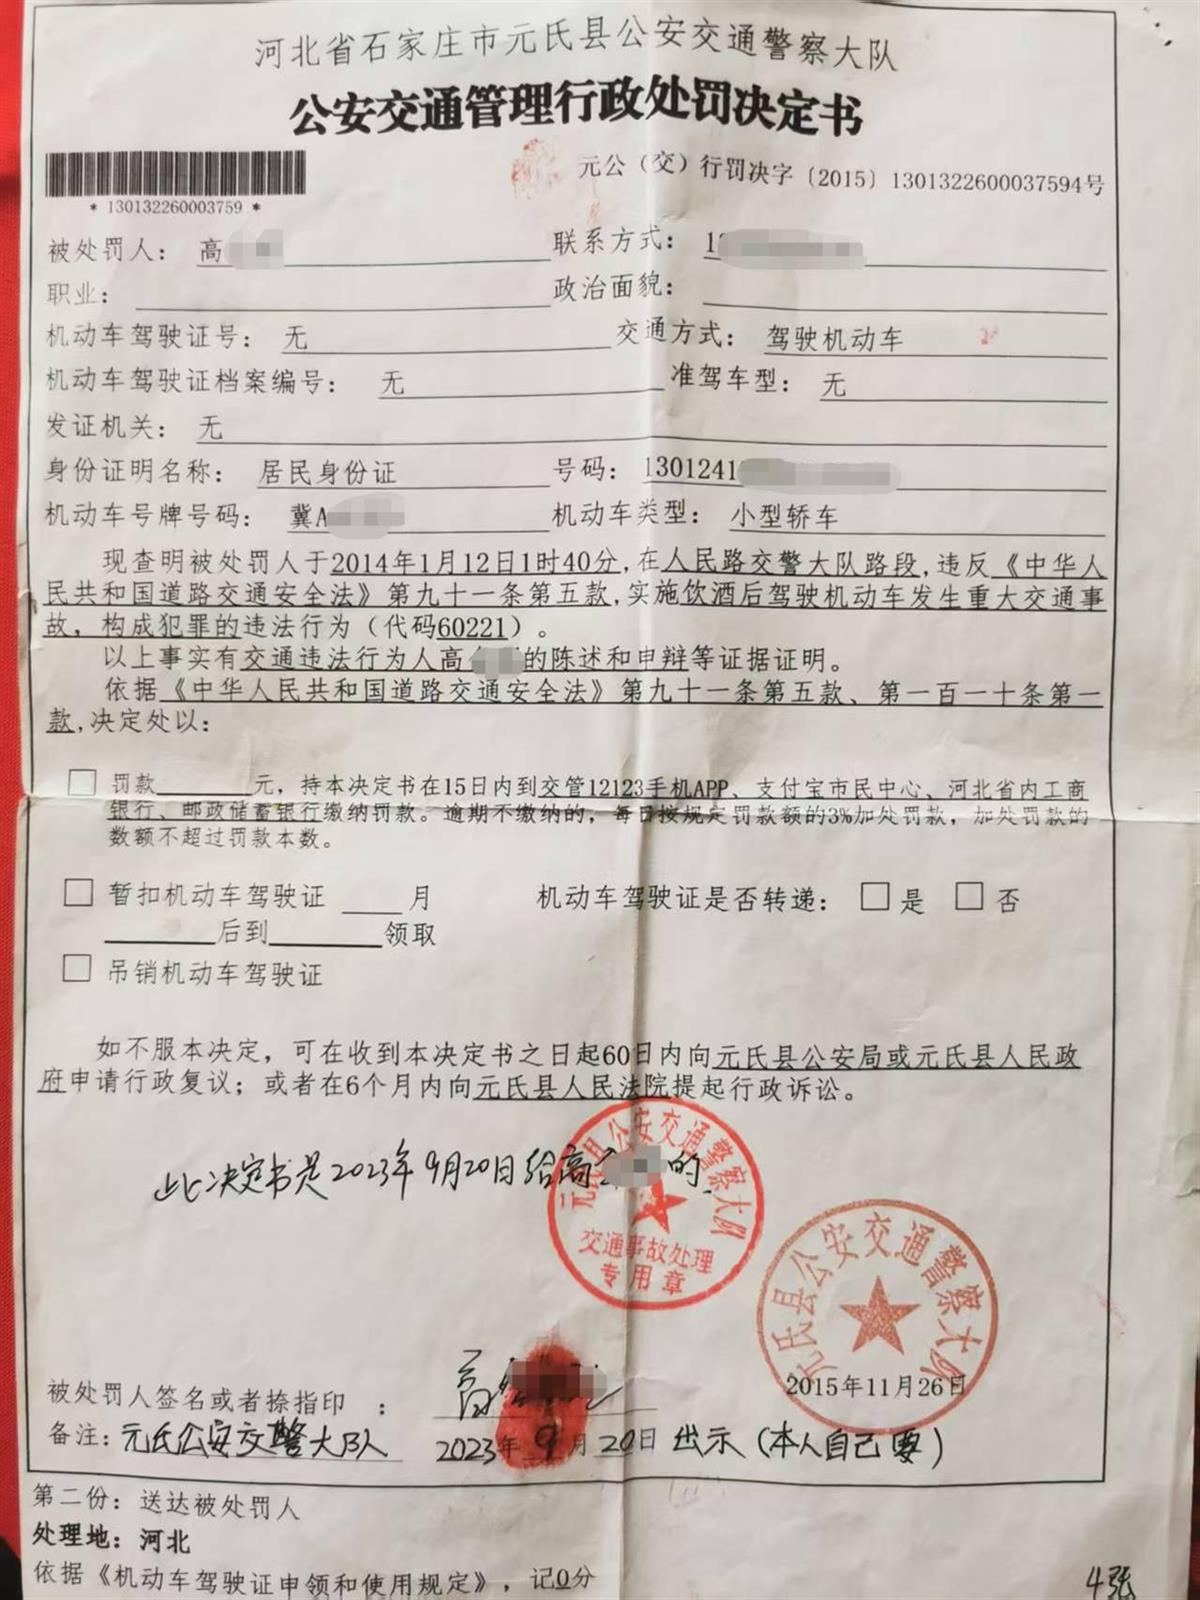 河北省石家庄市元氏县公安交通警察大队
公安交通管理行政处罚决定书
元公（交）行罚决字〔2015〕1301322600037594号
* 130132260003759 *
被处罚人： 高 联系方式： 1
职业： 政治面貌：
机动车驾驶证号： 无 交通方式： 驾驶机动车
机动车驾驶证档案编号： 无 准驾车型： 无
发证机关： 无
身份证明名称： 居民身份证 号码： 1301241
机动车号牌号码： 冀A 机动车类型： 小型轿车
现查明被处罚人于2014年1月12日1时40分，在人民路交警大队路段，违反《中华人
民共和国道路交通安全法》第九十一条第五款，实施饮酒后驾驶机动车发生重大交通事
故，构成犯罪的违法行为（代码60221）。
以上事实有交通违法行为人高 的陈述和申辩等证据证明。
依据《中华人民共和国道路交通安全法》第九十一条第五款、第一百一十条第一
款，决定处以：
□ 罚款 元，持本决定书在15日内到交管12123手机APP、支付宝市民中心、河北省内工商
银行、邮政储蓄银行缴纳罚款。逾期不缴纳的，每日按规定罚款额的3%加处罚款，加处罚款的
数额不超过罚款本数。
□ 暂扣机动车驾驶证 月 机动车驾驶证是否转递： □ 是 □ 否
后到 领取
□ 吊销机动车驾驶证
如不服本决定，可在收到本决定书之日起60日内向元氏县公安局或元氏县人民政
府申请行政复议；或者在6个月内向元氏县人民法院提起行政诉讼。
此决定书是2023年9月20日给高 的.
元氏县公安交通警察大队
交通事故处理
专用章
元氏县公安交通警察大队
2015年11月26日
被处罚人签名或者捺指印 ： 高
备注：元氏公安交警大队 2023年9月20日 出示（本人自己要）
第二份：送达被处罚人
处理地：河北
依据《机动车驾驶证申领和使用规定》，记0分
4张